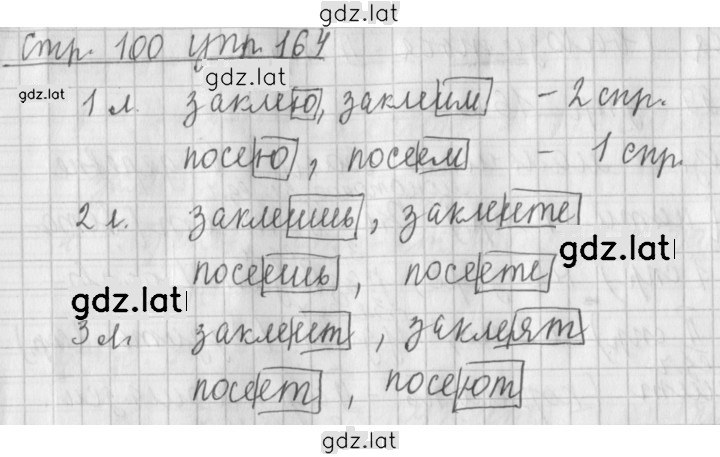 gdz.lat
стр. 100 упр. 164
gdz.lat
gdz.lat
1 л. заклею, заклеим - 2 спр.
посею, посеем - 1 спр.
2 л. заклеишь, заклеите
gdz.lat
посеешь, посеете
gdz.lat
3 л. заклеит, заклеят
посеет, посеют
gdz.lat